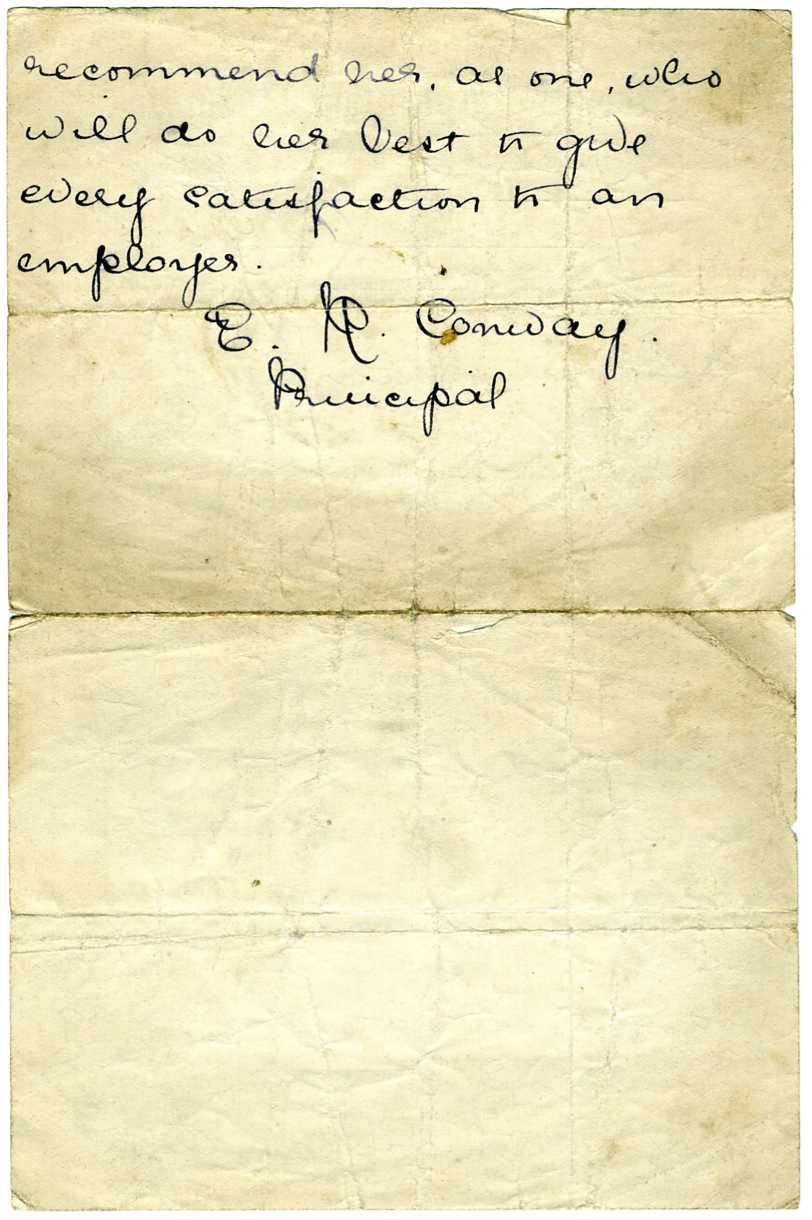 recommend her, as one, who
will do her best to give
every satisfaction to an
employer.
E. R. Conway.
Principal